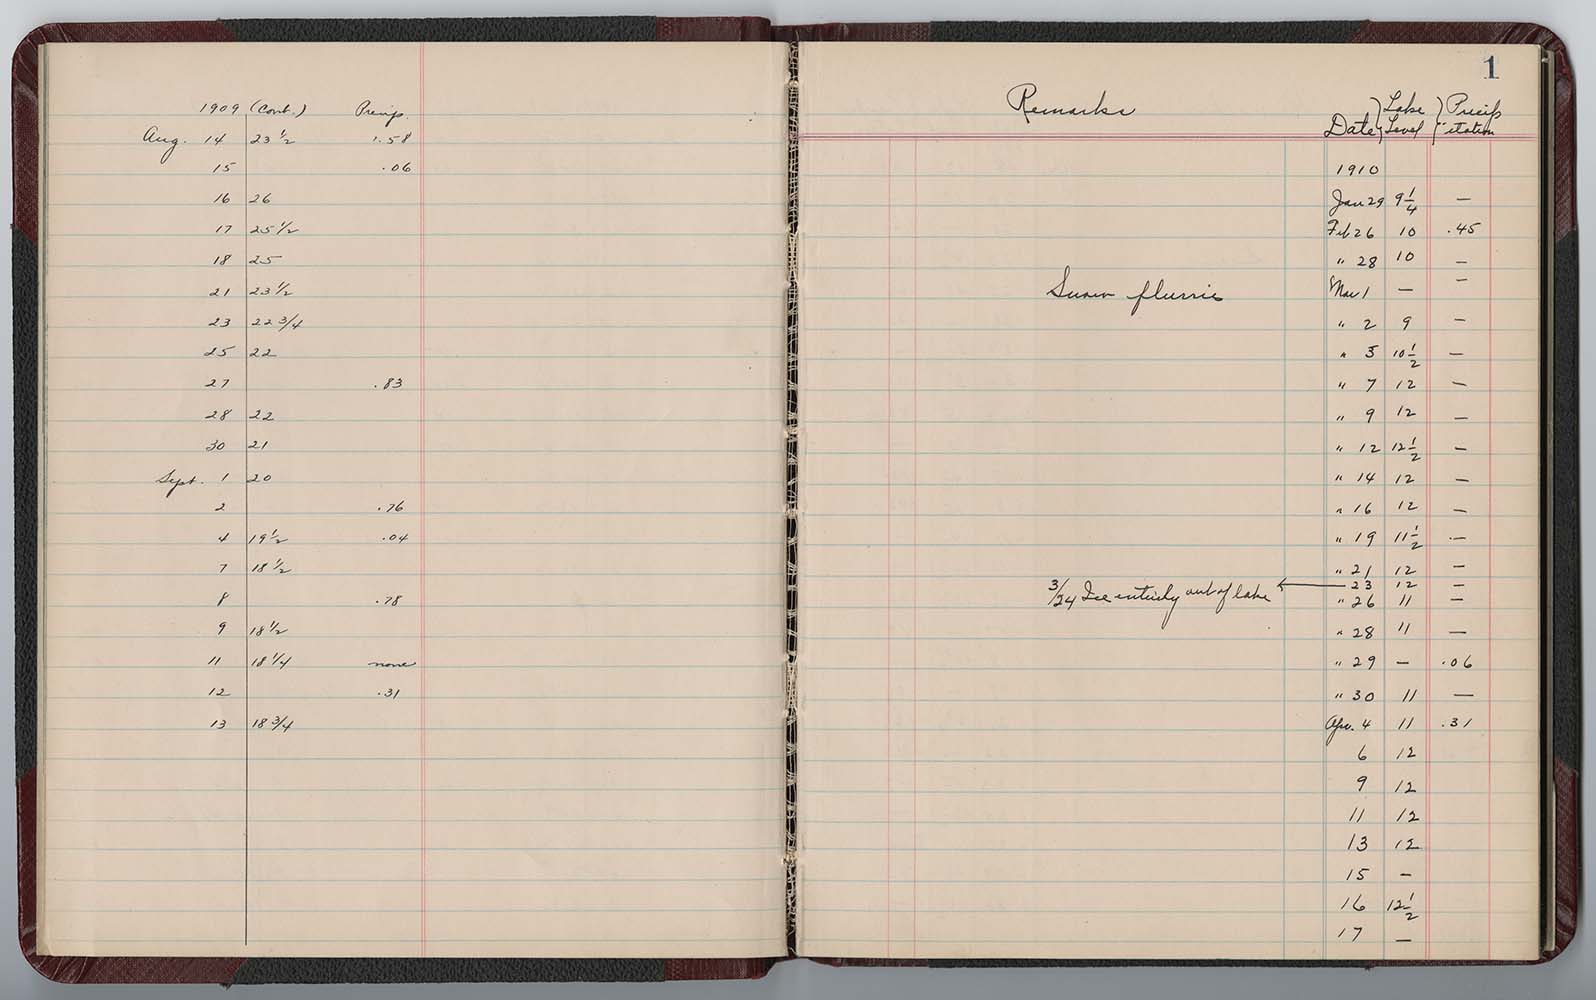 1909 (Cont.) Precip.
Aug. 14 23 1/2 1.58
15 .06
16 26
17 25 1/2
18 25
21 23 1/2
23 22 3/4
25 22
27 .83
28 22
30 21
Sept. 1 20
2 .76
4 19 1/2 .04
7 18 1/2
8 .78
9 18 1/2
11 18 1/4 none
12 .31
13 18 3/4
1
Remarks Date Lake Level Precip "itation
1910
Jan 29 9 1/4 —
Feb 26 10 .45
" 28 10 —
Snow flurrie Mar 1 — —
" 2 9 —
" 5 10 1/2 —
" 7 12 —
" 9 12 —
" 12 12 1/2 —
" 14 12 —
" 16 12 —
" 19 11 1/2 —
" 21 12 —
3/24 Ice entirely out of lake ← 23 12 —
" 26 11 —
" 28 11 —
" 29 — .06
" 30 11 —
Apr. 4 11 .31
6 12
9 12
11 12
13 12
15 —
16 12 1/2
17 —